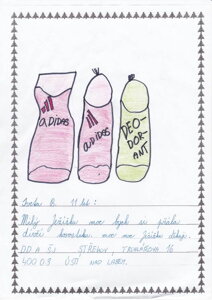 adidas
adidas
DEO-
DOR-
ANT
B. 11 let :
Milý Ježíšku moc bych si přála
dívčí kosmetiku. moc moc Ježíšku děkuji.
DD A ŠJ STŘEKOV TRUHLÁŘOVA 16
400 03 ÚSTÍ NAD LABEM.